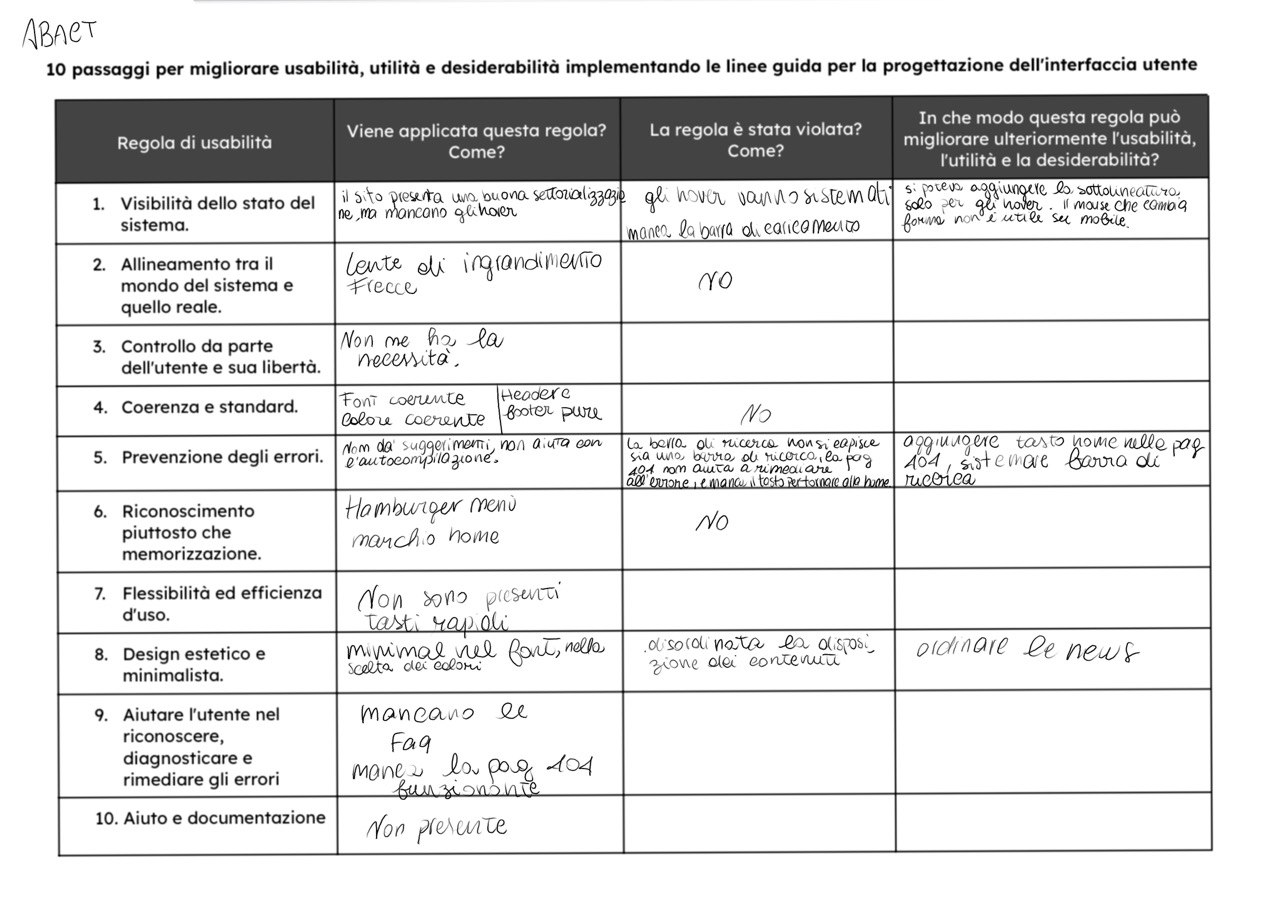 ABACT
10 passaggi per migliorare usabilità, utilità e desiderabilità implementando le linee guida per la progettazione dell'interfaccia utente
Regola di usabilità
Viene applicata questa regola?
Come?
La regola è stata violata?
Come?
In che modo questa regola può
migliorare ulteriormente l'usabilità,
l'utilità e la desiderabilità?
1. Visibilità dello stato del
sistema.
il sito presenta una buona settorializzazio
ne, ma mancano gli hover
gli hover vanno sistemati
manca la barra di caricamento
si poteva aggiungere la sottolineatura
solo per gli hover. il mouse che cambia
forma non è utile su mobile.
2. Allineamento tra il
mondo del sistema e
quello reale.
Lente di ingrandimento
Frecce
NO
3. Controllo da parte
dell'utente e sua libertà.
Non me ha la
necessità.
4. Coerenza e standard.
Font coerente
Colore coerente
Header e
footer pure
No
5. Prevenzione degli errori.
Non da' suggerimenti, non aiuta con
l'autocompilazione.
La barra di ricerca non si capisce
sia una barra di ricerca, la pag
404 non aiuta a rimediare
all'errore, e manca il tasto per tornare alla home
aggiungere tasto home nella pag
404, sistemare barra di
ricerca
6. Riconoscimento
piuttosto che
memorizzazione.
Hamburger menù
marchio home
NO
7. Flessibilità ed efficienza
d'uso.
Non sono presenti
tasti rapidi
8. Design estetico e
minimalista.
minimal nel font, nella
scelta dei colori
disordinata la disposi
zione dei contenuti
ordinare le news
9. Aiutare l'utente nel
riconoscere,
diagnosticare e
rimediare gli errori
mancano le
Faq
manca la pag 404
funzionante
10. Aiuto e documentazione
Non presente